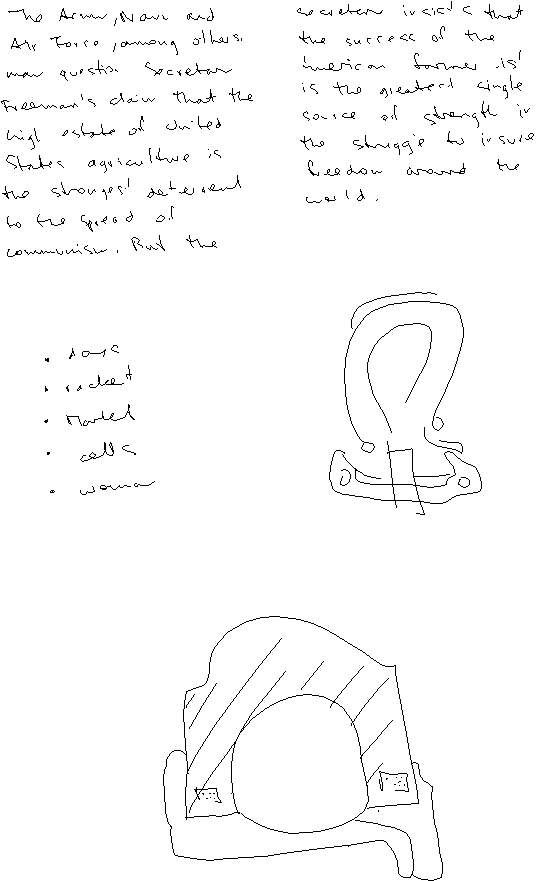 The Army, Navy and
Air Force, among others,
may question Secretary
Freeman's claim that the
high estate of United
States agriculture is
the strongest deterrent
to the spread of
communism. But the
secretary insists that
the success of the
American farmer is
is the greatest single
source of strength in
the struggle to insure
freedom around the
world.
rocket
Market
calls
woman